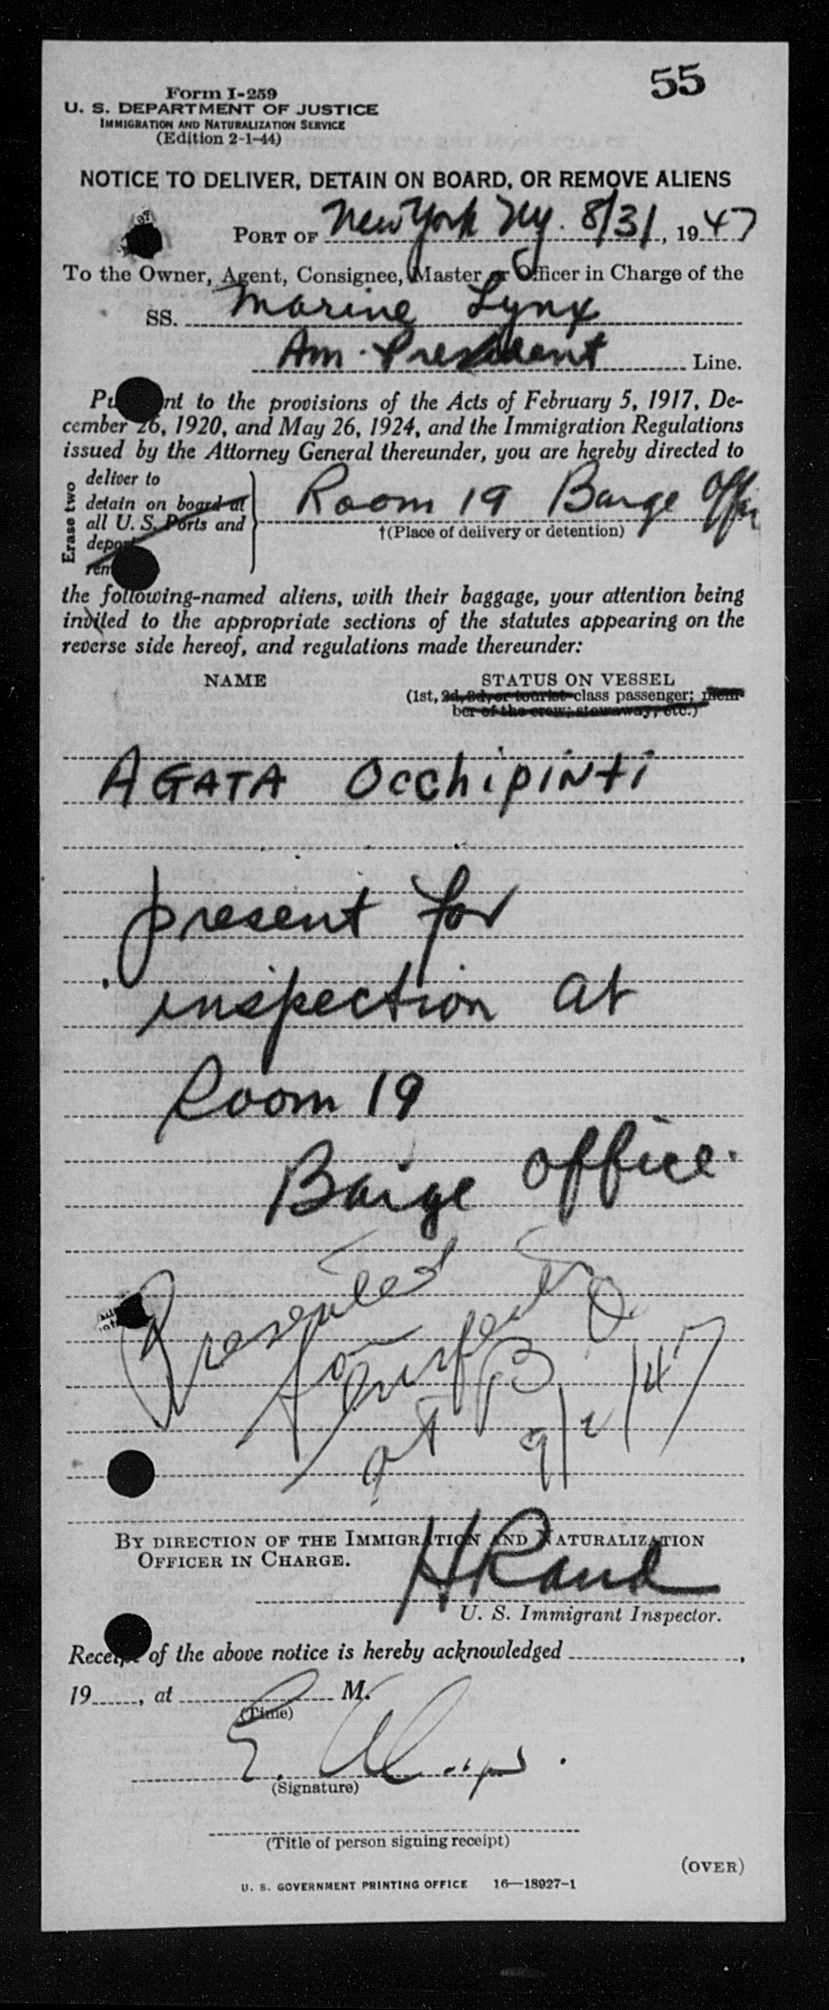 55
Form I-259
U. S. DEPARTMENT OF JUSTICE
IMMIGRATION AND NATURALIZATION SERVICE
(Edition 2-1-44)
NOTICE TO DELIVER, DETAIN ON BOARD, OR REMOVE ALIENS
PORT OF New York Ny. 8/31, 1947
To the Owner, Agent, Consignee, Master or Officer in Charge of the
SS. Marine Lynx
Am. President Line.
to the provisions of the Acts of February 5, 1917, De-
cember 26, 1920, and May 26, 1924, and the Immigration Regulations
issued by the Attorney General thereunder, you are hereby directed to
Erase two
deliver to
detain on board at
all U. S. Ports and
Room 19 Barge Office
†(Place of delivery or detention)
the following-named aliens, with their baggage, your attention being
invited to the appropriate sections of the statutes appearing on the
reverse side hereof, and regulations made thereunder:
NAME STATUS ON VESSEL
(1st, 2d, 3d, or tourist class passenger; mem-
ber of the crew; stowaway, etc.)
AGATA Occhipinti
present for
inspection at
Room 19
Barge office.
Presented
for
at B O
9/2/47
BY DIRECTION OF THE IMMIGRATION AND NATURALIZATION
OFFICER IN CHARGE.
H Rand
U. S. Immigrant Inspector.
Receipt of the above notice is hereby acknowledged ,
19 , at M.
(Time)
E.
(Signature)
(Title of person signing receipt)
(OVER)
U. S. GOVERNMENT PRINTING OFFICE 16—18927-1